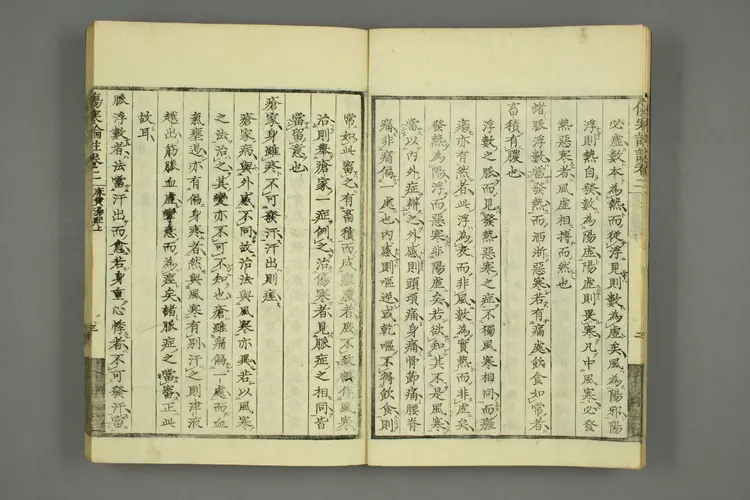 必虚數本為熱而從浮見則數為虚矣風為陽邪陽
浮則熱自發數為陽虚陽虚則畏寒凡中風寒必發
熱惡寒者風虚相摶而然也
諸脈浮數當發熱而洒淅惡寒若有痛處飲食如常者
畜積有膿也
浮數之脈而見發熱惡寒之症不獨風寒相同而癰
瘍亦有然者此浮為表而非風數為實熱而非虚矣
發熱為陽浮而惡寒非陽虚矣若欲知其不是風寒
當以内外症辨之外感則頭項痛身痛骨節痛腰脊
痛非痛偏一處也内感則嘔逆或乾嘔不得飲食則
常如此審之有畜積而成癰膿者庶不致誤作風寒
治則舉瘡家一症例之治傷寒者見脈症之相同皆
當留意也
瘡家身雖疼不可發汗汗出則痙
瘡家病與外感不同故治法與風寒亦異若以風寒
之法治之其變亦不可不知也瘡雖痛偏一處而血
氣壅遏亦有偏身寒者然與風寒有别汗之則津液
越出筋脈血虚攣急而為痙矣諸脈症之當審正此
故耳
脈浮數者法當汗出而愈若身重心悸者不可發汗當
傷寒論註卷二 麻黄湯症上